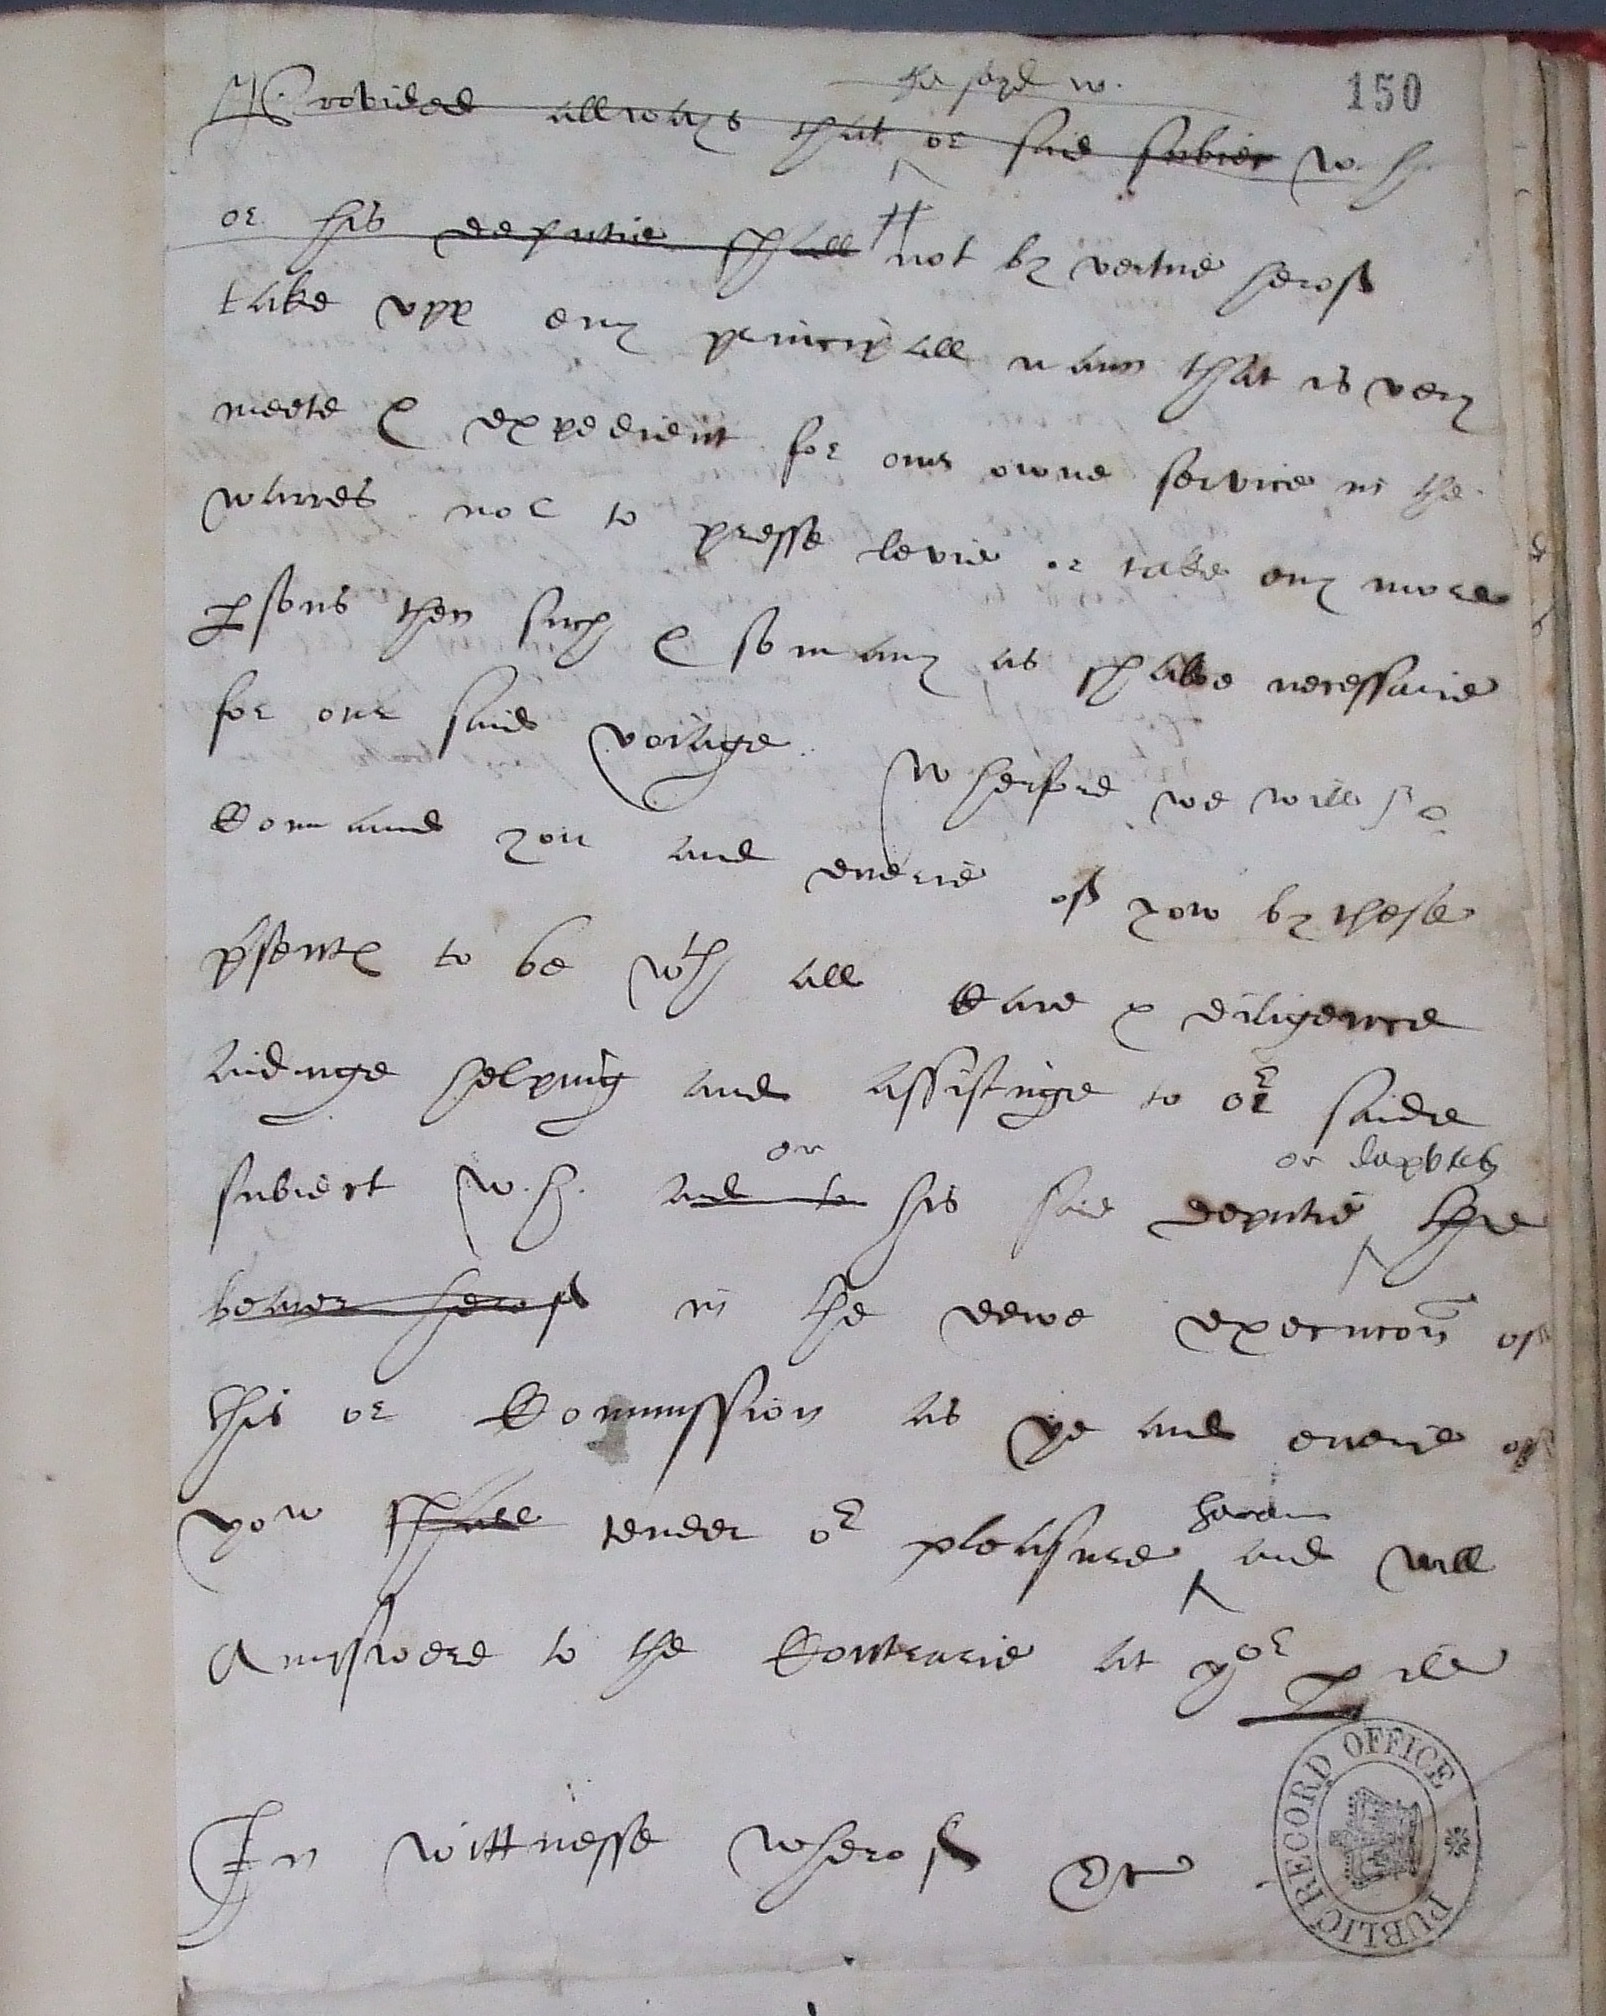 the sayd w.
150
Provided allwayes that or said subiect w. h.
or his deputie shall not by vertue herof
take vpp eny principall mann that is very
meete & expedient for our owne service in the
warres nor to presse levie or take eny more
psons then such & so many as shalbe necessarie
for our said voiage Wherfore we will &
Commaund you and euerie of yow by these
psentes to be wth all Care & diligence
aidinge helping and assistinge to or saide
or or deputies
subiect W. H. and to his said deputie the
bearer herof in the dewe execucon of
this or Commission as ye and euerie of
herein
yow shall tender or pleasure and will
Answere to the Contrarie at yor perill
In wittnesse wherof &c
PUBLIC RECORD OFFICE